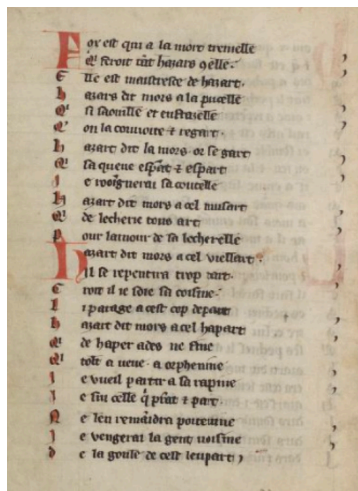 For est qui a la mort tremelle
Qi seroit tāt hazars q̄elle
E lle est maistresse de hazart
h azars dit mors a la pucelle
Qi si saoulle et
Q' on la couvoite & regart
h azart dit la mors or se gart
Qi sa queue espāt & espart
I e rooignerai sa
h azart dit mors a cel musart
Qi de lecherie tout art
P our lamour de sa lecherelle
Hazart dit mors a cel viellart
Qil se repentira trop tart
C roit il ie soie sa cosine
I parage a cest cop depart
h azart dit mors a cel hapart
Qi de haper ades ne fine
Qi tolt a veue a orphenine
I e vueil partir a sa rapine
I e sui celle q̄ prēt & part
N e len remaīdra poitevine
I e vengerai la gent voisine
D e la goule de cest leupart